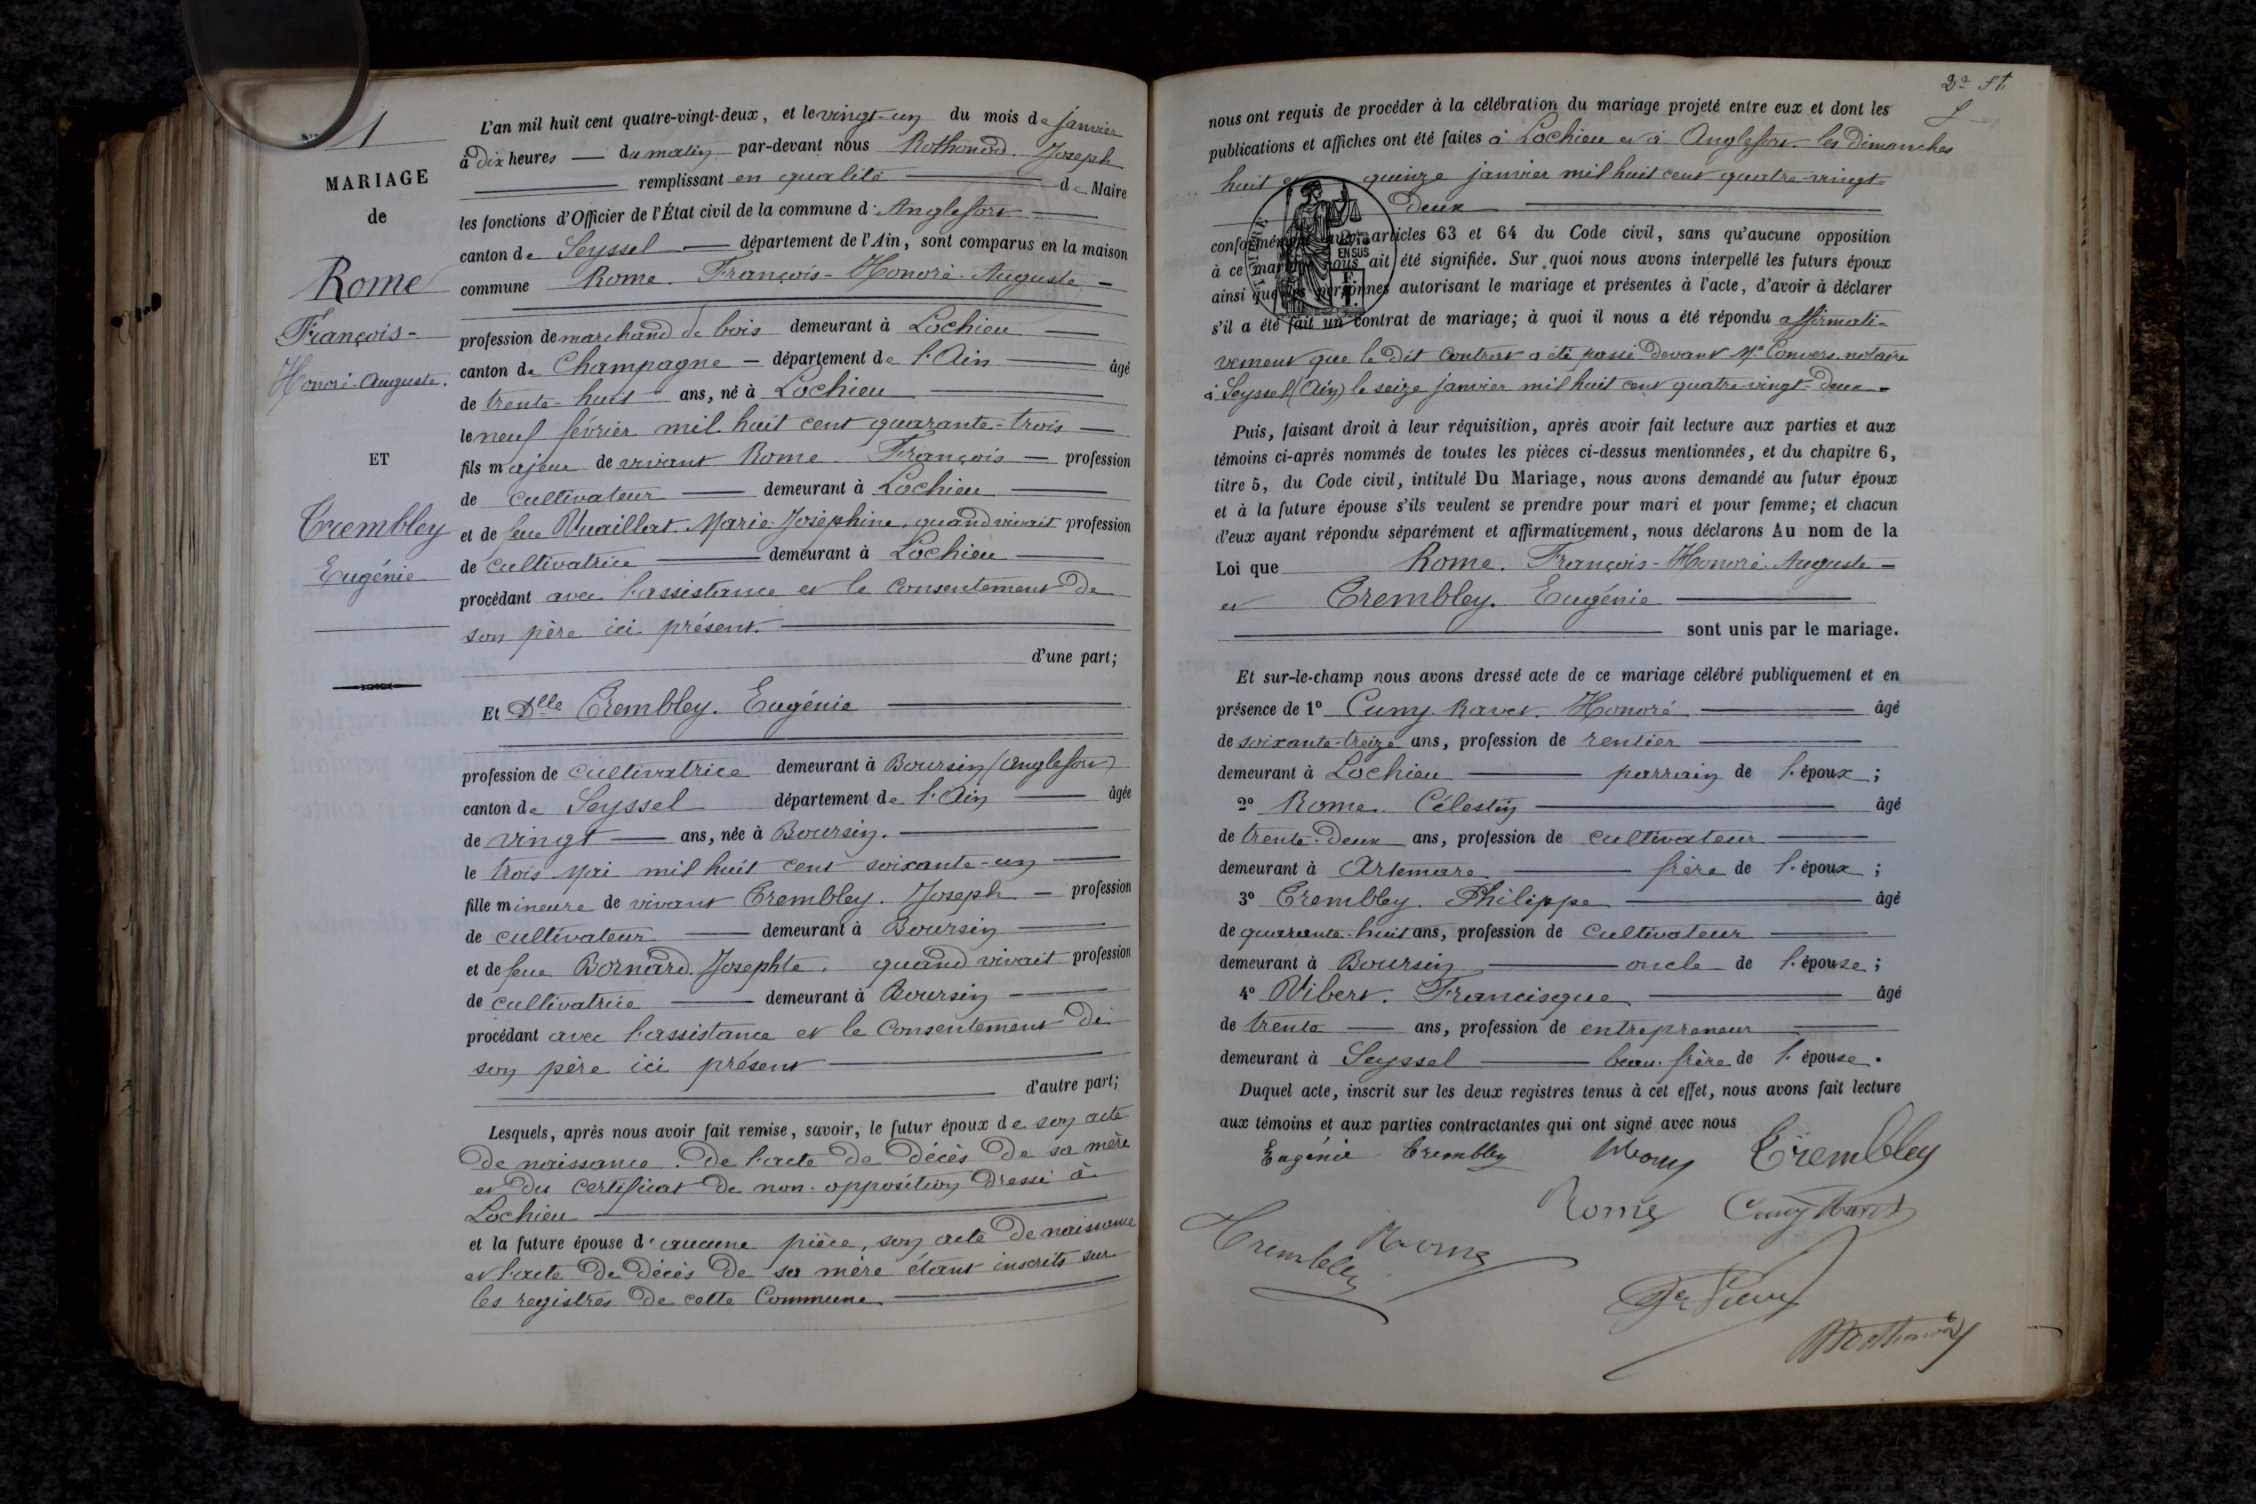 1
MARIAGE
de
Rome
François-
Honoré-Auguste.
ET
Trembley
Eugénie
L'an mil huit cent quatre-vingt-deux, et le vingt-un du mois de janvier
à dix heures du matin par-devant nous Rothonard Joseph
remplissant en qualité de Maire
les fonctions d'Officier de l'État civil de la commune d'Anglefort
canton de Seyssel département de l'Ain, sont comparus en la maison
commune Rome. François-Honoré-Auguste
profession de marchand de bois demeurant à Lochieu
canton de Champagne département de l'Ain âgé
de trente-huit ans, né à Lochieu
le neuf février mil huit cent quarante-trois
fils majeur de vivant Rome François profession
de cultivateur demeurant à Lochieu
et de feue Vuaillat Marie-Joséphine, quand vivait profession
de cultivatrice demeurant à Lochieu
procédant avec l'assistance et le consentement de
son père ici présent.
d'une part;
Et Dlle Trembley. Eugénie
profession de cultivatrice demeurant à Boursin (Anglefort)
canton de Seyssel département de l'Ain âgée
de vingt ans, née à Boursin.
le trois Mai mil huit cent soixante-un
fille mineure de vivant Trembley. Joseph profession
de cultivateur demeurant à Boursin
et de feue Bornard Josephte. quand vivait profession
de cultivatrice demeurant à Boursin
procédant avec l'assistance et le consentement de
son père ici présent
d'autre part;
Lesquels, après nous avoir fait remise, savoir, le futur époux de son acte
de naissance. de l'acte de décès de sa mère
et du certificat de non-opposition dressé à
Lochieu
et la future épouse d'aucune pièce, son acte de naissance
et l'acte de décès de sa mère étant inscrits sur
les registres de cette Commune
nous ont requis de procéder à la célébration du mariage projeté entre eux et dont les
publications et affiches ont été faites à Lochieu et à Anglefort les dimanches
huit et quinze janvier mil huit cent quatre-vingt-
deux
conformément aux articles 63 et 64 du Code civil, sans qu'aucune opposition
à ce mariage nous ait été signifiée. Sur quoi nous avons interpellé les futurs époux
ainsi que les personnes autorisant le mariage et présentes à l'acte, d'avoir à déclarer
s'il a été fait un contrat de mariage; à quoi il nous a été répondu affirmati-
vement que le dit contrat a été passé devant Me Convers notaire
à Seyssel (Ain) le seize janvier mil huit cent quatre-vingt-deux
EN SUS
Puis, faisant droit à leur réquisition, après avoir fait lecture aux parties et aux
témoins ci-après nommés de toutes les pièces ci-dessus mentionnées, et du chapitre 6,
titre 5, du Code civil, intitulé Du Mariage, nous avons demandé au futur époux
et à la future épouse s'ils veulent se prendre pour mari et pour femme; et chacun
d'eux ayant répondu séparément et affirmativement, nous déclarons Au nom de la
Loi que Rome. François-Honoré-Auguste
et Trembley. Eugénie
sont unis par le mariage.
Et sur-le-champ nous avons dressé acte de ce mariage célébré publiquement et en
présence de 1º Cuny-Ravet. Honoré âgé
de soixante-treize ans, profession de rentier
demeurant à Lochieu parrain de l'époux;
2º Rome. Célestin âgé
de trente-deux ans, profession de cultivateur
demeurant à Artemare frère de l'époux;
3º Trembley. Philippe âgé
de quarante-huit ans, profession de cultivateur
demeurant à Boursin oncle de l'épouse;
4º Vibert. Francisque âgé
de trente ans, profession de entrepreneur
demeurant à Seyssel beau-frère de l'épouse.
Duquel acte, inscrit sur les deux registres tenus à cet effet, nous avons fait lecture
aux témoins et aux parties contractantes qui ont signé avec nous
Eugénie Trembley Trembley
Rome Cuny Ravet
Trembley Rome
Rothonard